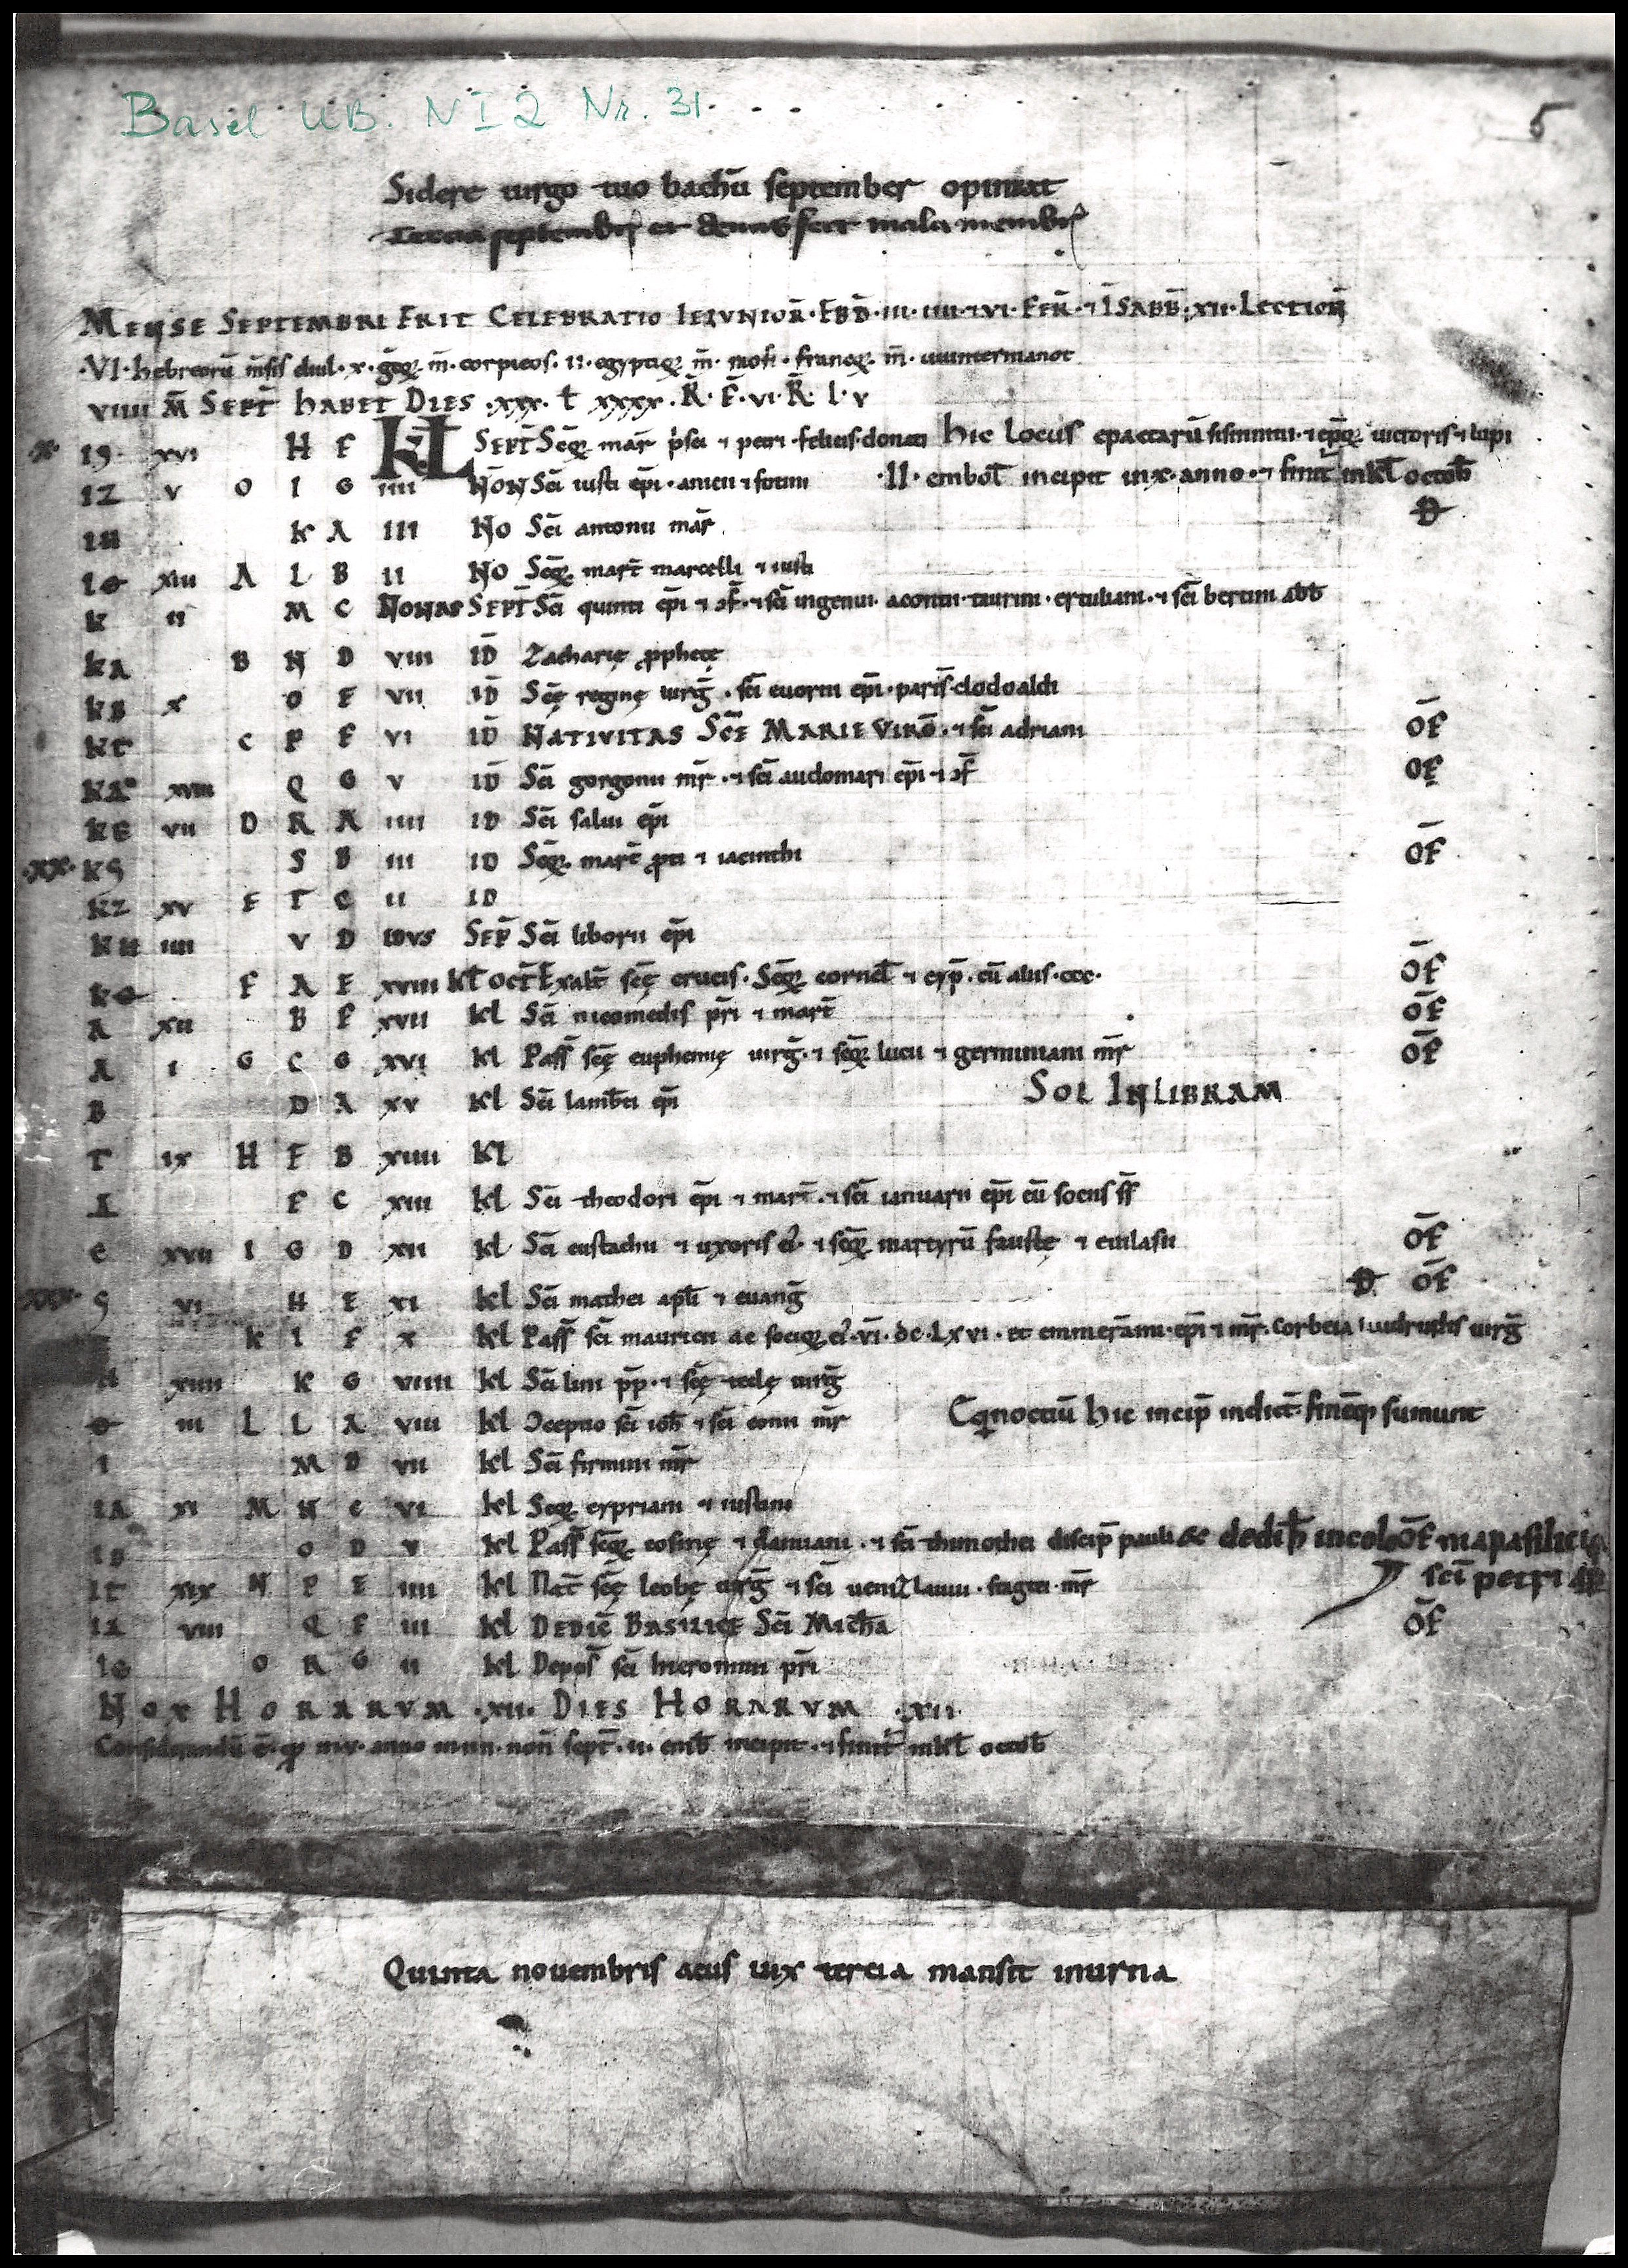 Basel UB. N I 2 Nr. 31.
5
Sidere uirgo tuo bachū september opimat
Tercia septembrꝭ et denus fert mala membrꝭ
MENSE SEPTEMBRI ERIT CELEBRATIO IEIVNIOR̄·EBD̄·III·IIII·⁊VI·FER̄·⁊ ĪSABB̄·XII·LECTION̄
·VI·hebreorū mēsis elul·x·grꝫ m̄·corpieos·II·egyptiꝫ m̄· ·francꝫ m̄·uuintermanot
VIIII M̄ SEPT̄ HABET DIES ·XXX·
·X· 19· XVI H F KL SEPT̄ Scōꝝ mar̄ prīsci ⁊ petri·felicis·donati hic locus epactarū ·⁊ ep̄oꝝ uictoris ⁊ lupi
12 V O I G IIII NON Scī iusti ep̄i· ·II·embol̄ incipit in x·anno·⁊ finit in kl̄ octob̄
III K A III NO Scī antonii mar̄ D
10 XIII A L B II NO Scōꝝ mart̄ marcelli ⁊ iusti
K II M C NONAS SEPT̄ Scī quinti ep̄i ⁊ ɔf̄·⁊ scī ingenui· acontii·taurini·erculiani·⁊ scī bertini abb̄
KA B N D VIII ID̄ Zacharię ꝓphetę
KB X O E VII ID̄ Scę̄ reginę uirḡ·scī euorti ep̄i·paris̄·clodoaldi
KC C P F VI ID̄ NATIVITAS SCĒ MARIE VIRḠ·⁊ scī adriani ŌF
KD XVIII Q G V ID̄ Scī gorgonii mr̄·⁊ scī audomari ep̄i ⁊ ɔf̄ ŌF
KE VII D R A IIII ID Scī salui ep̄i
·XX· KS S B III ID Scōꝝ mart̄ proti ⁊ iacincthi ŌF
KZ XV E T C II ID
KH IIII V D IDVS SEP̄ Scī liborii ep̄i
KΘ F A E XVIII KL̄ OCT̄ Exalt̄ scę̄ crucis·Scōꝝ cornel̄ ⁊ cyp̄·cū aliis·ccc· ŌF
A XII B F XVII kl Scī nicomedis p̄ri ⁊ mart̄ ŌF
A I G C G XVI kl Pass̄ scę̄ euphemię uirḡ·⁊ scōꝝ lucii ⁊ geminiani mr̄ ŌF
B D A XV kl Scī lamb̄ti ep̄i SOL IN LIBRAM
Γ IX H E B XIIII kl
Δ F C XIII kl Scī theodori ep̄i ⁊ mart̄·⁊ scī ianuarii ep̄i cū sociis s̄s
E XVII I G D XII kl Scī eustachii ⁊ uxoris ei᷒·⁊ scōꝝ martyrū faustę ⁊ euilasii ŌF
·XXX· S VI H E XI kl Scī mathei apl̄i ⁊ euang̅ D ŌF
K I F X kl Pass̄ scī mauricii ac socioꝝ ei᷒·VI·DC·LXVI·et emmerāmi·ep̄i ⁊ mr̄. uirḡ
H XIIII K G VIIII kl Scī lini pp̄·⁊ scę̄ teclę uirḡ
Θ III L L A VIII kl Ɔceptio scī ioh̄ ⁊ scī mr̄ Eqnoctiū hic incip̄ indict̄ finēqꝫ sumunt
I M B VII kl Scī firmini mr̄
IA XI M N C VI kl Scōꝝ cypriani ⁊ iustinę
IB O D V kl Pass̄ scōꝝ cosmę ⁊ damiani·⁊ scī thimothei discip̄ pauli ŌF
IC XIX N P E IIII kl Nat̄ scę̄ leobę uirḡ ⁊ scī uenizlauui· mr̄ scī petri
IΔ VIII Q F III kl DEDIC̄ BASILICE Scī MICH̄A ŌF
IΘ O R G II kl Depos̄ scī hieronimi p̄ri
NOX HORARVM ·XII· DIES HORARVM ·XII·
Considerandū ē·qđ in x·anno in IIII·non̄ sept̄·II·emb̄ incipit·⁊ finit᷒ in kl̄ octob̄
Quinta nouembris acus uix tercia mansit in urna